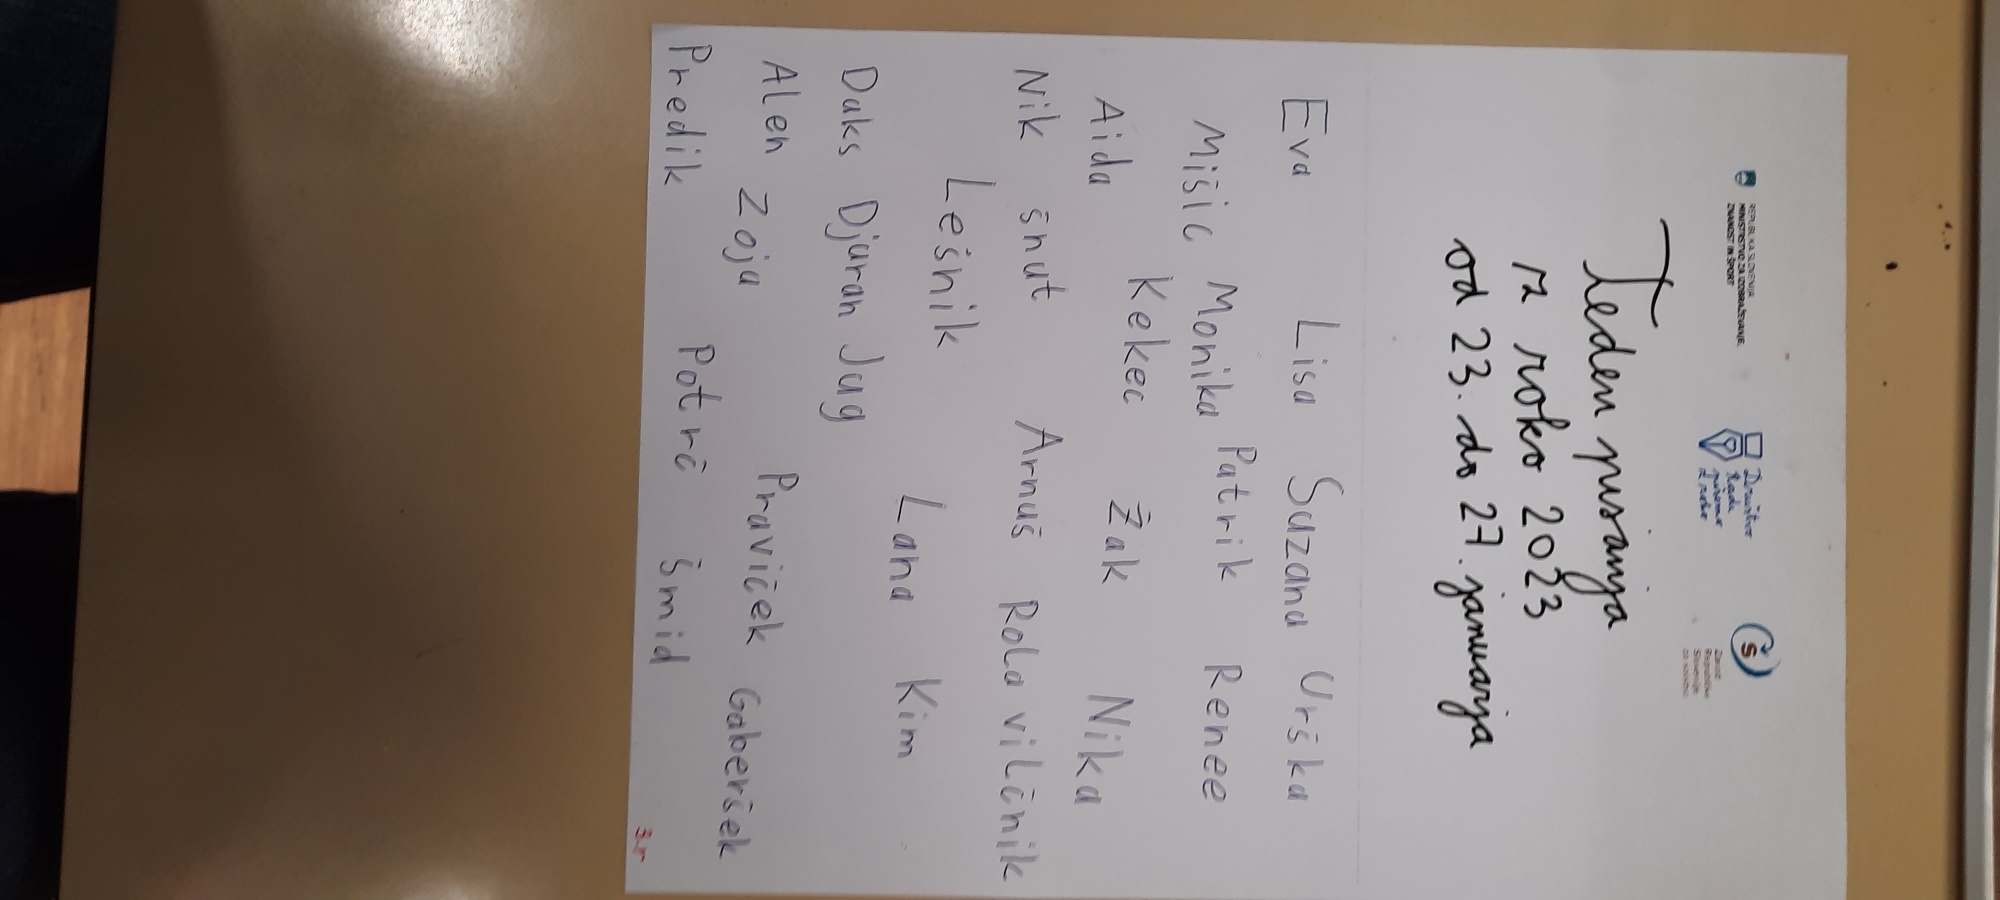 REPUBLIKA SLOVENIJA
MINISTRSTVO ZA IZOBRAŽEVANJE,
ZNANOST IN ŠPORT
Društvo
Radi
pišemo
z roko
Š
Zavod
Republike
Slovenije
za šolstvo
Teden pisanja
z roko 2023
od 23. do 27. januarja
Eva Lisa Suzana Urška
Mišic Monika Patrik Renee
Aida Kekec Žak Nika
Nik šnut Arnuš Rola vilčnik
Lešnik Lana Kim
Daks Djuran Jug
Alen Zoja Praviček Gaberšek
Predik Potrč šmid
3.r